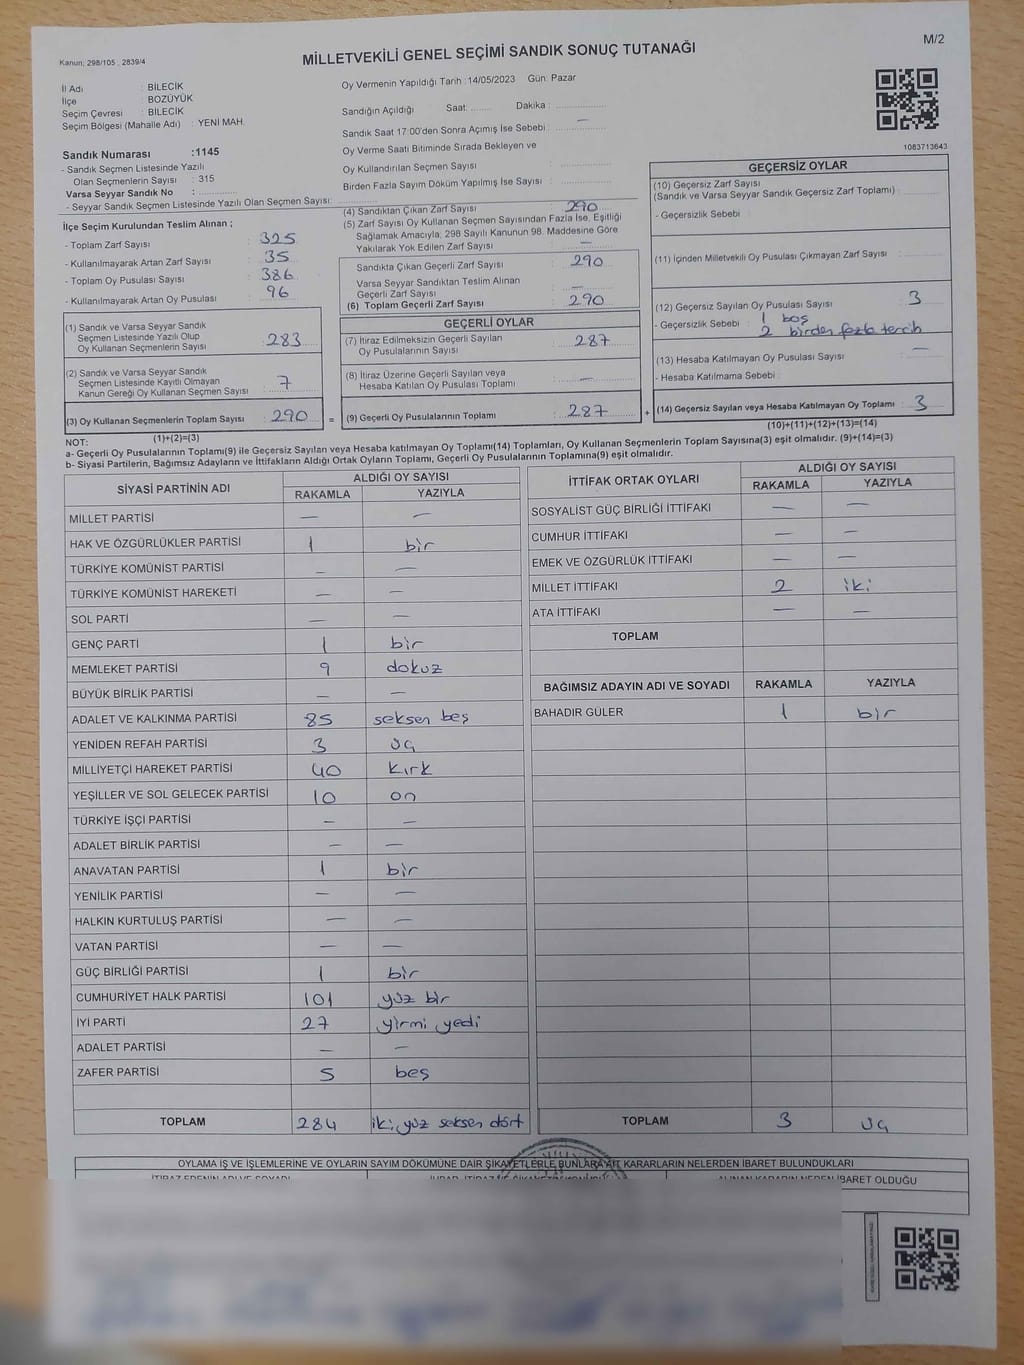 M/2
MİLLETVEKİLİ GENEL SEÇİMİ SANDIK SONUÇ TUTANAĞI
Kanun; 298/105 , 2839/4
İl Adı : BİLECİK
İlçe : BOZÜYÜK
Seçim Çevresi : BİLECİK
Seçim Bölgesi (Mahalle Adı) : YENİ MAH.
Sandık Numarası :1145
- Sandık Seçmen Listesinde Yazılı
Olan Seçmenlerin Sayısı : 315
Varsa Seyyar Sandık No :
- Seyyar Sandık Seçmen Listesinde Yazılı Olan Seçmen Sayısı:
Oy Vermenin Yapıldığı Tarih :14/05/2023 Gün: Pazar
Sandığın Açıldığı Saat: Dakika :
Sandık Saat 17:00'den Sonra Açımış İse Sebebi : —
Oy Verme Saati Bitiminde Sırada Bekleyen ve
Oy Kullandırılan Seçmen Sayısı :
Birden Fazla Sayım Döküm Yapılmış İse Sayısı :
1083713643
İlçe Seçim Kurulundan Teslim Alınan ;
- Toplam Zarf Sayısı : 325
- Kullanılmayarak Artan Zarf Sayısı : 35
- Toplam Oy Pusulası Sayısı : 386
- Kullanılmayarak Artan Oy Pusulası : 96
(1) Sandık ve Varsa Seyyar Sandık
Seçmen Listesinde Yazılı Olup
Oy Kullanan Seçmenlerin Sayısı : 283
(2) Sandık ve Varsa Seyyar Sandık
Seçmen Listesinde Kayıtlı Olmayan
Kanun Gereği Oy Kullanan Seçmen Sayısı : 7
(3) Oy Kullanan Seçmenlerin Toplam Sayısı : 290 =
(1)+(2)=(3)
(4) Sandıktan Çıkan Zarf Sayısı : 290
(5) Zarf Sayısı Oy Kullanan Seçmen Sayısından Fazla İse, Eşitliği
Sağlamak Amacıyla, 298 Sayılı Kanunun 98. Maddesine Göre
Yakılarak Yok Edilen Zarf Sayısı : —
Sandıkta Çıkan Geçerli Zarf Sayısı : 290
Varsa Seyyar Sandıktan Teslim Alınan
Geçerli Zarf Sayısı : —
(6) Toplam Geçerli Zarf Sayısı : 290
GEÇERLİ OYLAR
(7) İtiraz Edilmeksizin Geçerli Sayılan
Oy Pusulalarının Sayısı : 287
(8) İtiraz Üzerine Geçerli Sayılan veya
Hesaba Katılan Oy Pusulası Toplamı : —
(9) Geçerli Oy Pusulalarının Toplamı : 287 +
GEÇERSİZ OYLAR
(10) Geçersiz Zarf Sayısı
(Sandık ve Varsa Seyyar Sandık Geçersiz Zarf Toplamı) :
- Geçersizlik Sebebi :
(11) İçinden Milletvekili Oy Pusulası Çıkmayan Zarf Sayısı :
(12) Geçersiz Sayılan Oy Pusulası Sayısı : 3
- Geçersizlik Sebebi : 1 boş
2 birden fazla tercih
(13) Hesaba Katılmayan Oy Pusulası Sayısı : —
- Hesaba Katılmama Sebebi :
(14) Geçersiz Sayılan veya Hesaba Katılmayan Oy Toplamı : 3
(10)+(11)+(12)+(13)=(14)
NOT:
a- Geçerli Oy Pusulalarının Toplamı(9) ile Geçersiz Sayılan veya Hesaba katılmayan Oy Toplamı(14) Toplamları, Oy Kullanan Seçmenlerin Toplam Sayısına(3) eşit olmalıdır. (9)+(14)=(3)
b- Siyasi Partilerin, Bağımsız Adayların ve İttifakların Aldığı Ortak Oyların Toplamı, Geçerli Oy Pusulalarının Toplamına(9) eşit olmalıdır.
SİYASİ PARTİNİN ADI ALDIĞI OY SAYISI
RAKAMLA YAZIYLA
MİLLET PARTİSİ — —
HAK VE ÖZGÜRLÜKLER PARTİSİ 1 bir
TÜRKİYE KOMÜNİST PARTİSİ — —
TÜRKİYE KOMÜNİST HAREKETİ — —
SOL PARTİ — —
GENÇ PARTİ 1 bir
MEMLEKET PARTİSİ 9 dokuz
BÜYÜK BİRLİK PARTİSİ — —
ADALET VE KALKINMA PARTİSİ 85 seksen beş
YENİDEN REFAH PARTİSİ 3 üç
MİLLİYETÇİ HAREKET PARTİSİ 40 kırk
YEŞİLLER VE SOL GELECEK PARTİSİ 10 on
TÜRKİYE İŞÇİ PARTİSİ — —
ADALET BİRLİK PARTİSİ — —
ANAVATAN PARTİSİ 1 bir
YENİLİK PARTİSİ — —
HALKIN KURTULUŞ PARTİSİ — —
VATAN PARTİSİ — —
GÜÇ BİRLİĞİ PARTİSİ 1 bir
CUMHURİYET HALK PARTİSİ 101 yüz bir
İYİ PARTİ 27 yirmi yedi
ADALET PARTİSİ — —
ZAFER PARTİSİ 5 beş
TOPLAM 284 iki yüz seksen dört
İTTİFAK ORTAK OYLARI ALDIĞI OY SAYISI
RAKAMLA YAZIYLA
SOSYALİST GÜÇ BİRLİĞİ İTTİFAKI — —
CUMHUR İTTİFAKI — —
EMEK VE ÖZGÜRLÜK İTTİFAKI — —
MİLLET İTTİFAKI 2 iki
ATA İTTİFAKI — —
TOPLAM
BAĞIMSIZ ADAYIN ADI VE SOYADI RAKAMLA YAZIYLA
BAHADIR GÜLER 1 bir
TOPLAM 3 üç
OYLAMA İŞ VE İŞLEMLERİNE VE OYLARIN SAYIM DÖKÜMÜNE DAİR ŞİKAYETLERLE BUNLARA AİT KARARLARIN NELERDEN İBARET BULUNDUKLARI
İTİRAZ EDENİN ADI VE SOYADI ALINAN KARARIN NEDEN İBARET OLDUĞU